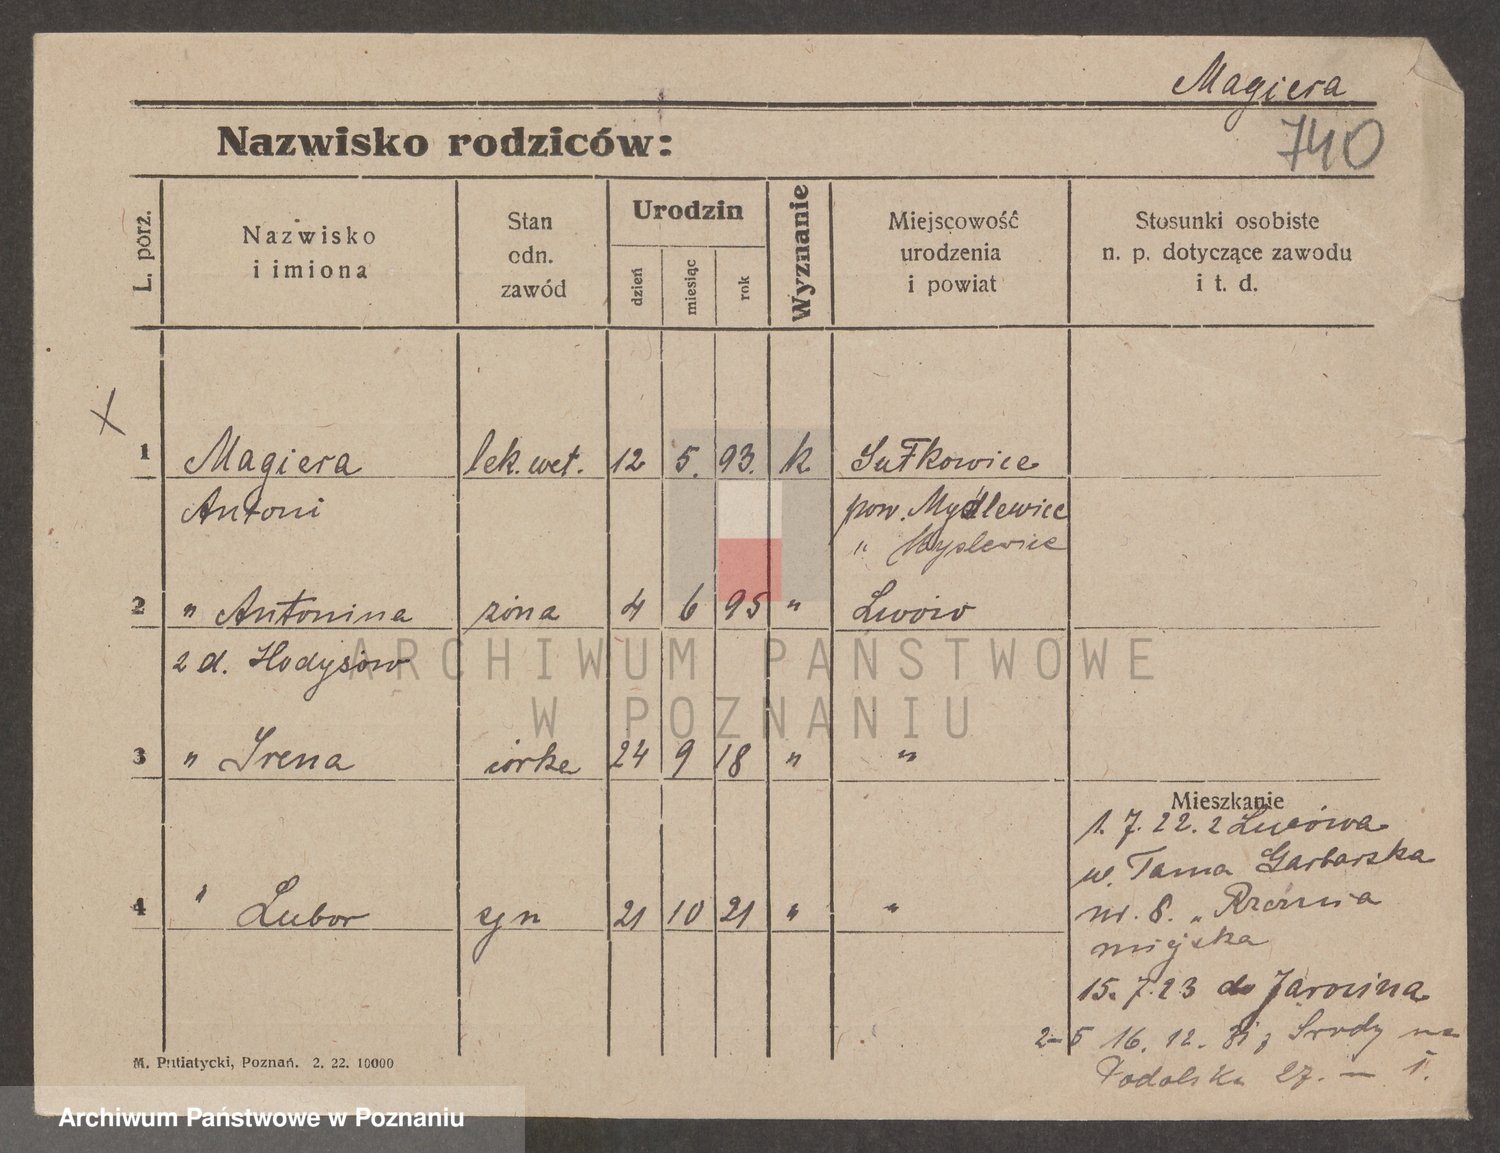 Magiera
740
Nazwisko rodziców:
L. porz.
Nazwisko
i imiona
Stan
odn.
zawód
Urodzin
dzień
miesiąc
rok
Wyznanie
Miejscowość
urodzenia
i powiat
Stosunki osobiste
n. p. dotyczące zawodu
i t. d.
1 Magiera lek. wet. 12 5. 93. k. Sułkowice
Antoni pow. Myślewice
" Myslewice
2 " Antonina żona 4 6 95 " Lwów
z d. Hodysow
3 " Irena córka 24 9 18 " "
4 " Lubor syn 21 10 21 " "
Mieszkanie
1. 7. 22. z Lwówa
w. Tama Garbarska
nr. 8. " Rzeźnia
miejska
15. 7. 23 do Jarocina
2-5 16. 12. 31 z Środy na
Podolska 27. — I.
M. Putiatycki, Poznań. 2. 22. 10000
ARCHIWUM PAŃSTWOWE
W POZNANIU
Archiwum Państwowe w Poznaniu